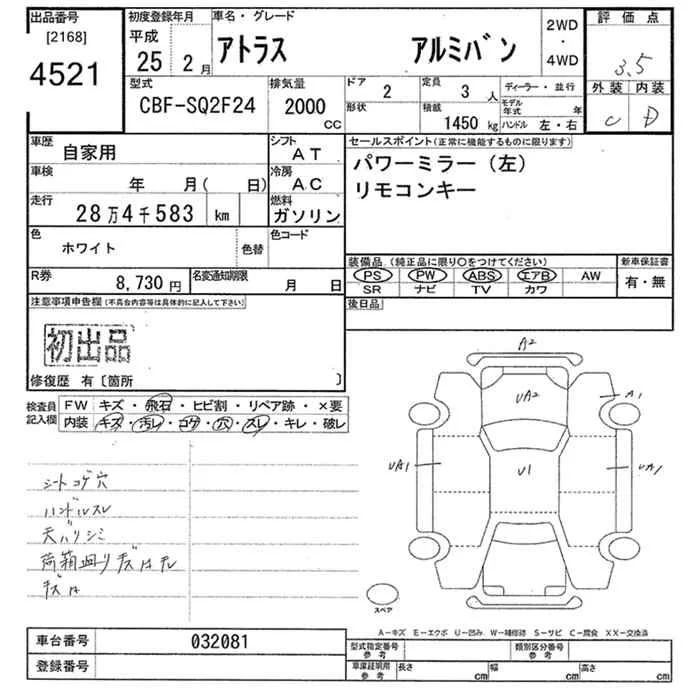 出品番号 初度登録年月 車名・グレード 評価点
[2168] 平成 アトラス アルミバン 2WD
4521 25 2月 ・ 4WD 3.5
型式 排気量 ドア 2 定員 3人 ディーラー・並行 外装 内装
CBF-SQ2F24 2000 CC 形状 積載 1450 kg モデル年式 年 C D
ハンドル 左・右
車歴 自家用 シフト AT セールスポイント(正常に機能するものに限ります)
車検 年 月( 日) 冷房 AC パワーミラー(左)
走行 28万4千583 km 燃料 ガソリン リモコンキー
色 ホワイト 色替 色コード
装備品(純正品に限り○をつけてください) 新車保証書
R券 8,730円 名変通知期限 月 日 PS PW ABS エアB AW 有・無
SR ナビ TV カワ
注意事項申告欄(不具合内容等は具体的に記入して下さい) 後日品
初出品
修復歴 有〔箇所 〕
検査員 FW キズ・飛石・ヒビ割・リペア跡・×要
記入欄 内装 キズ・汚レ・コゲ・穴・スレ・キレ・破レ
A2
UA2 A1
UA1 U1 UA1
シートコゲ穴
ハンドルスレ
天バリシミ
荷箱廻りキズ
スペア
A-キズ E-エクボ U-凹み W-補修跡 S-サビ C-腐食 XX-交換済
車台番号 032081 型式指定番号 参考 類別区分番号 参考
登録番号 車庫証明用 参考 長さ cm 幅 cm 高さ cm